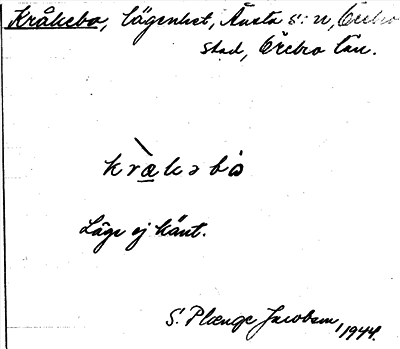 Kråkebo, lägenhet, Ånsta s:n, Örebro
stad, Örebro län.
kràkəbo
Läge ej känt.
S. Plænge Jacobson, 1944.